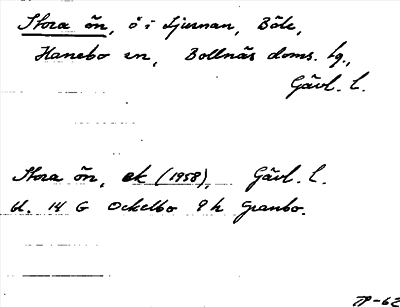 Stora ön, ö i Ljusnan, Böle,
Hanebo sn, Bollnäs doms. hg.,
Gävl. l.
Stora ön, ek (1958), Gävl. l.
bl. 14 G Ockelbo 9 h Granbo.
-62